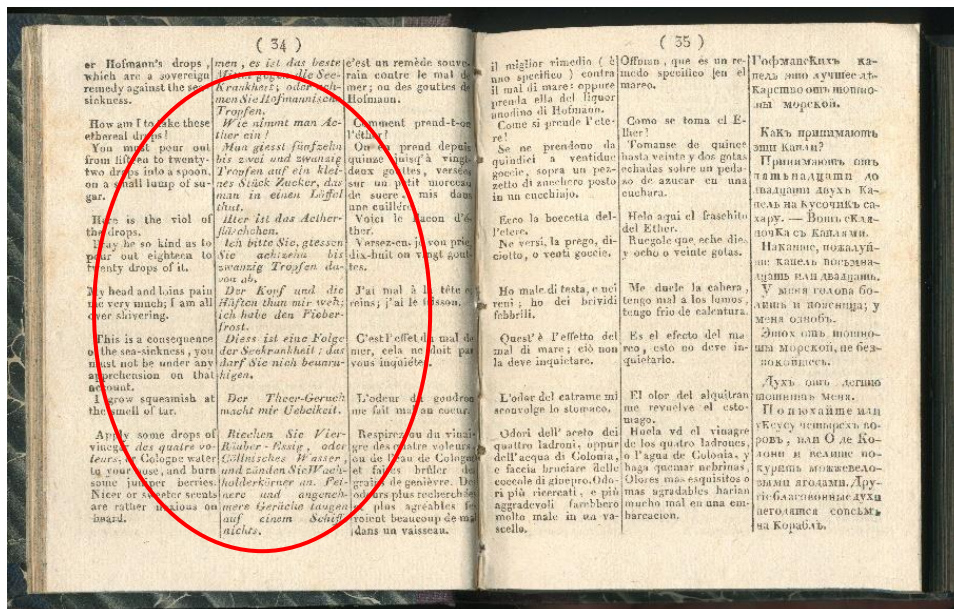 ( 34 )
er Hofmann's drops,
which are a sovereign
remedy against the sea-
sickness.
How am I to take these
ethereal drops?
You must pour out
from fifteen to twenty-
two drops into a spoon,
on a small lump of su-
gar.
Here is the viol of
the drops.
Pray be so kind as to
pour out eighteen to
twenty drops of it.
My head and loins pain
me very much; I am all
over shivering.
This is a consequence
of the sea-sickness, you
must not be under any
apprehension on that
account.
I grow squeamish at
the smell of tar.
Apply some drops of
vinegar des quatre vo-
leurs, or Cologne water
to your nose, and burn
some juniper berries.
Nicer or sweeter scents
are rather noxious on
board.
men, es ist das beste
Mittel gegen die See-
Krankheit; oder neh-
men Sie Hofmannische
Tropfen.
Wie nimmt man Ae-
ther ein?
Man giesst fünfzehn
bis zwei und zwanzig
Tropfen auf ein klei-
nes Stück Zucker, das
man in einen Löffel
thut.
Hier ist das Aether-
fläschchen.
Ich bitte Sie, giessen
Sie achtzehn bis
zwanzig Tropfen da-
von ab.
Der Kopf und die
Hüften thun mir weh;
ich habe den Fieber-
frost.
Diess ist eine Folge
der Seekrankheit; das
darf Sie nich beunru-
higen.
Der Theer-Geruch
macht mir Uebelkeit.
Riechen Sie Vier-
Räuber-Essig, oder
Cöllnisches Wasser,
und zünden Sie Wach-
holderkörner an. Fei-
nere und angeneh-
mere Gerüche taugen
auf einem Schiff
nichts.
c'est un remède souve-
rain contre le mal de
mer; ou des gouttes de
Hofmann.
Comment prend-t-on
l'éther?
On en prend depuis
quinze jusqu'à vingt-
deux gouttes, versées
sur un petit morceau
de sucre, mis dans
une cuillère.
Voici le flacon d'é-
ther.
Versez-en, je vou prie,
dix-huit ou vingt gout-
tes.
J'ai mal à la tête et
reins; j'ai le frisson.
C'est l'effet du mal de
mer, cela ne doit pas
vous inquiéter.
L'odeur du goudron
me fait mal au coeur.
Respirez ou du vinai-
gre des quatre voleurs,
ou de l'eau de Cologne
et faites brûler des
grains de genièvre. Des
odeurs plus recherchées
et plus agréables fe-
roient beaucoup de mal
dans un vaisseau.
( 35 )
il miglior rimedio ( è
uno specifico ) contra
il mal di mare: oppure
prenda ella del liquor
anodino di Hofmann.
Come si prende l'ete-
re?
Se ne prendono da
quindici a ventidue
goccie, sopra un pez-
zetto di zucchero posto
in un cucchiajo.
Ecco la boccetta del-
l'etere.
Ne versi, la prego, di-
ciotto, o venti goccie.
Ho male di testa, e nei
reni; ho dei brividi
febbrili.
Quest'è l'effetto del
mal di mare; ciò non
la deve inquietare.
L'odor del catrame mi
sconvolge lo stomaco.
Odori dell' aceto dei
quattro ladroni, oppur
dell'acqua di Colonia,
e faccia bruciare delle
coccole di ginepro. Odo-
ri più ricercati, e più
aggradevoli farebbero
molto male in un va-
scello.
Offoman, que es un re-
medo specifico en el
mareo.
Como se toma el E-
ther?
Tomanse de quince
hasta veinte y dos gotas
echadas sobre un peda-
so de azucar en una
cuchara.
Helo aqui el fraschito
del Ether.
Ruegole que eche diez
y ocho o veinte gotas.
Me duele la cabera,
tengo mal a los lumos,
tengo frio de calentura.
Es el efecto del ma
reo, esto no deve in-
quietarlo.
El olor del alquitran
me revuelve el esto-
mago.
Huela vd el vinagre
de los quatro ladrones,
o l'agua de Colonia, y
haga quemar nebrinas,
Olores mas esquisitos o
mas agradables harian
mucho mal en una em-
barcacion.
Гофманскихъ ка-
пель это лучшее лѣ-
карство отъ тошно-
ты морской.
Какъ принимаютъ
эти Капли?
Принимаютъ отъ
пятьнадцати до
двадцати двухъ Ка-
пель на Кусочикъ са-
хару. — Вотъ скля-
ночка съ Каплями.
Накапте, пожалуй-
те капель восьмна-
дцать или двадцать.
У меня голова бо-
литъ и поясница; у
меня ознобъ.
Этох отъ тошно-
ты морской, не без-
покойтесь.
Духъ отъ дегтю
тошнитъ меня.
Понюхайте или
уксусу четырехъ во-
ровъ, или О де Ко-
лони и велите по-
курить можжевело-
выми ягодами. Дру-
гіе благовонные духи
негодятся совсѣмъ
на Корабль.